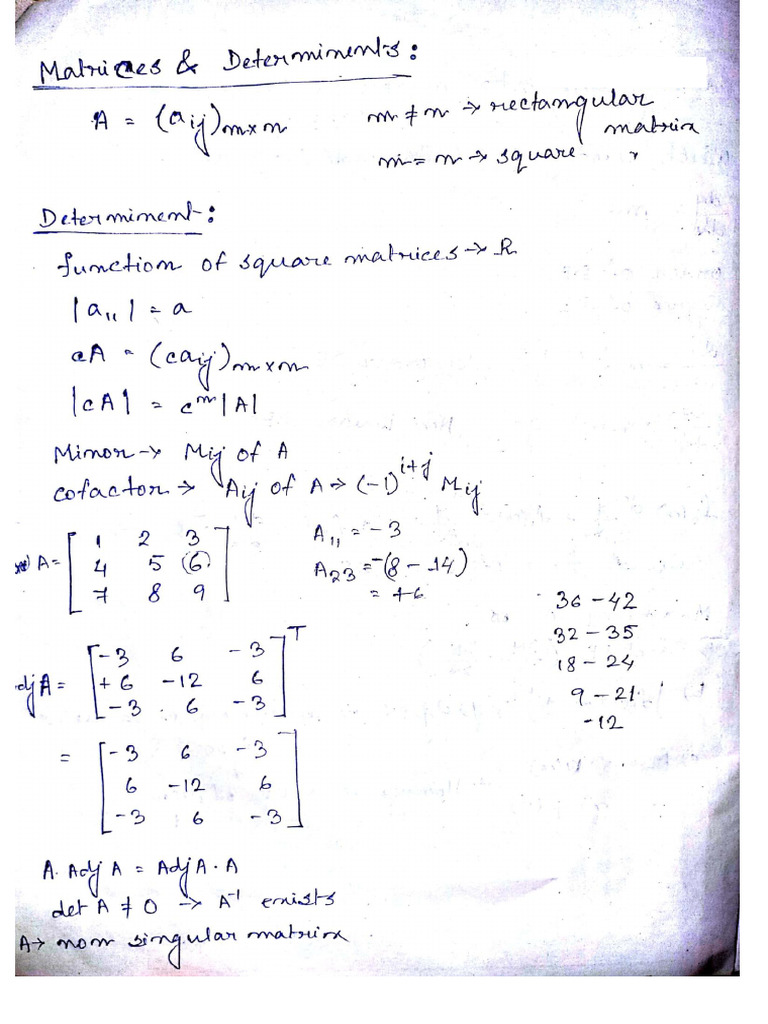 Matrices & Determinents:
A = (aij)m×n m ≠ n → rectangular matrix
m = n → square "
Determinent:
function of square matrices → R
|a₁₁| = a
cA = (caij)m×n
|cA| = cⁿ|A|
Minor → Mij of A
cofactor → Aij of A → (-1)^{i+j} Mij
A = [ 1 2 3 A₁₁ = -3
4 5 (6) A₂₃ = -(8 - 14)
7 8 9 ] = +6
36 - 42
32 - 35
18 - 24
9 - 21
-12
djA = [ -3 6 -3
+6 -12 6
-3 6 -3 ]ᵀ
= [ -3 6 -3
6 -12 6
-3 6 -3 ]
A. Adj A = Adj A · A
det A ≠ 0 → A⁻¹ exists
A → non singular matrix